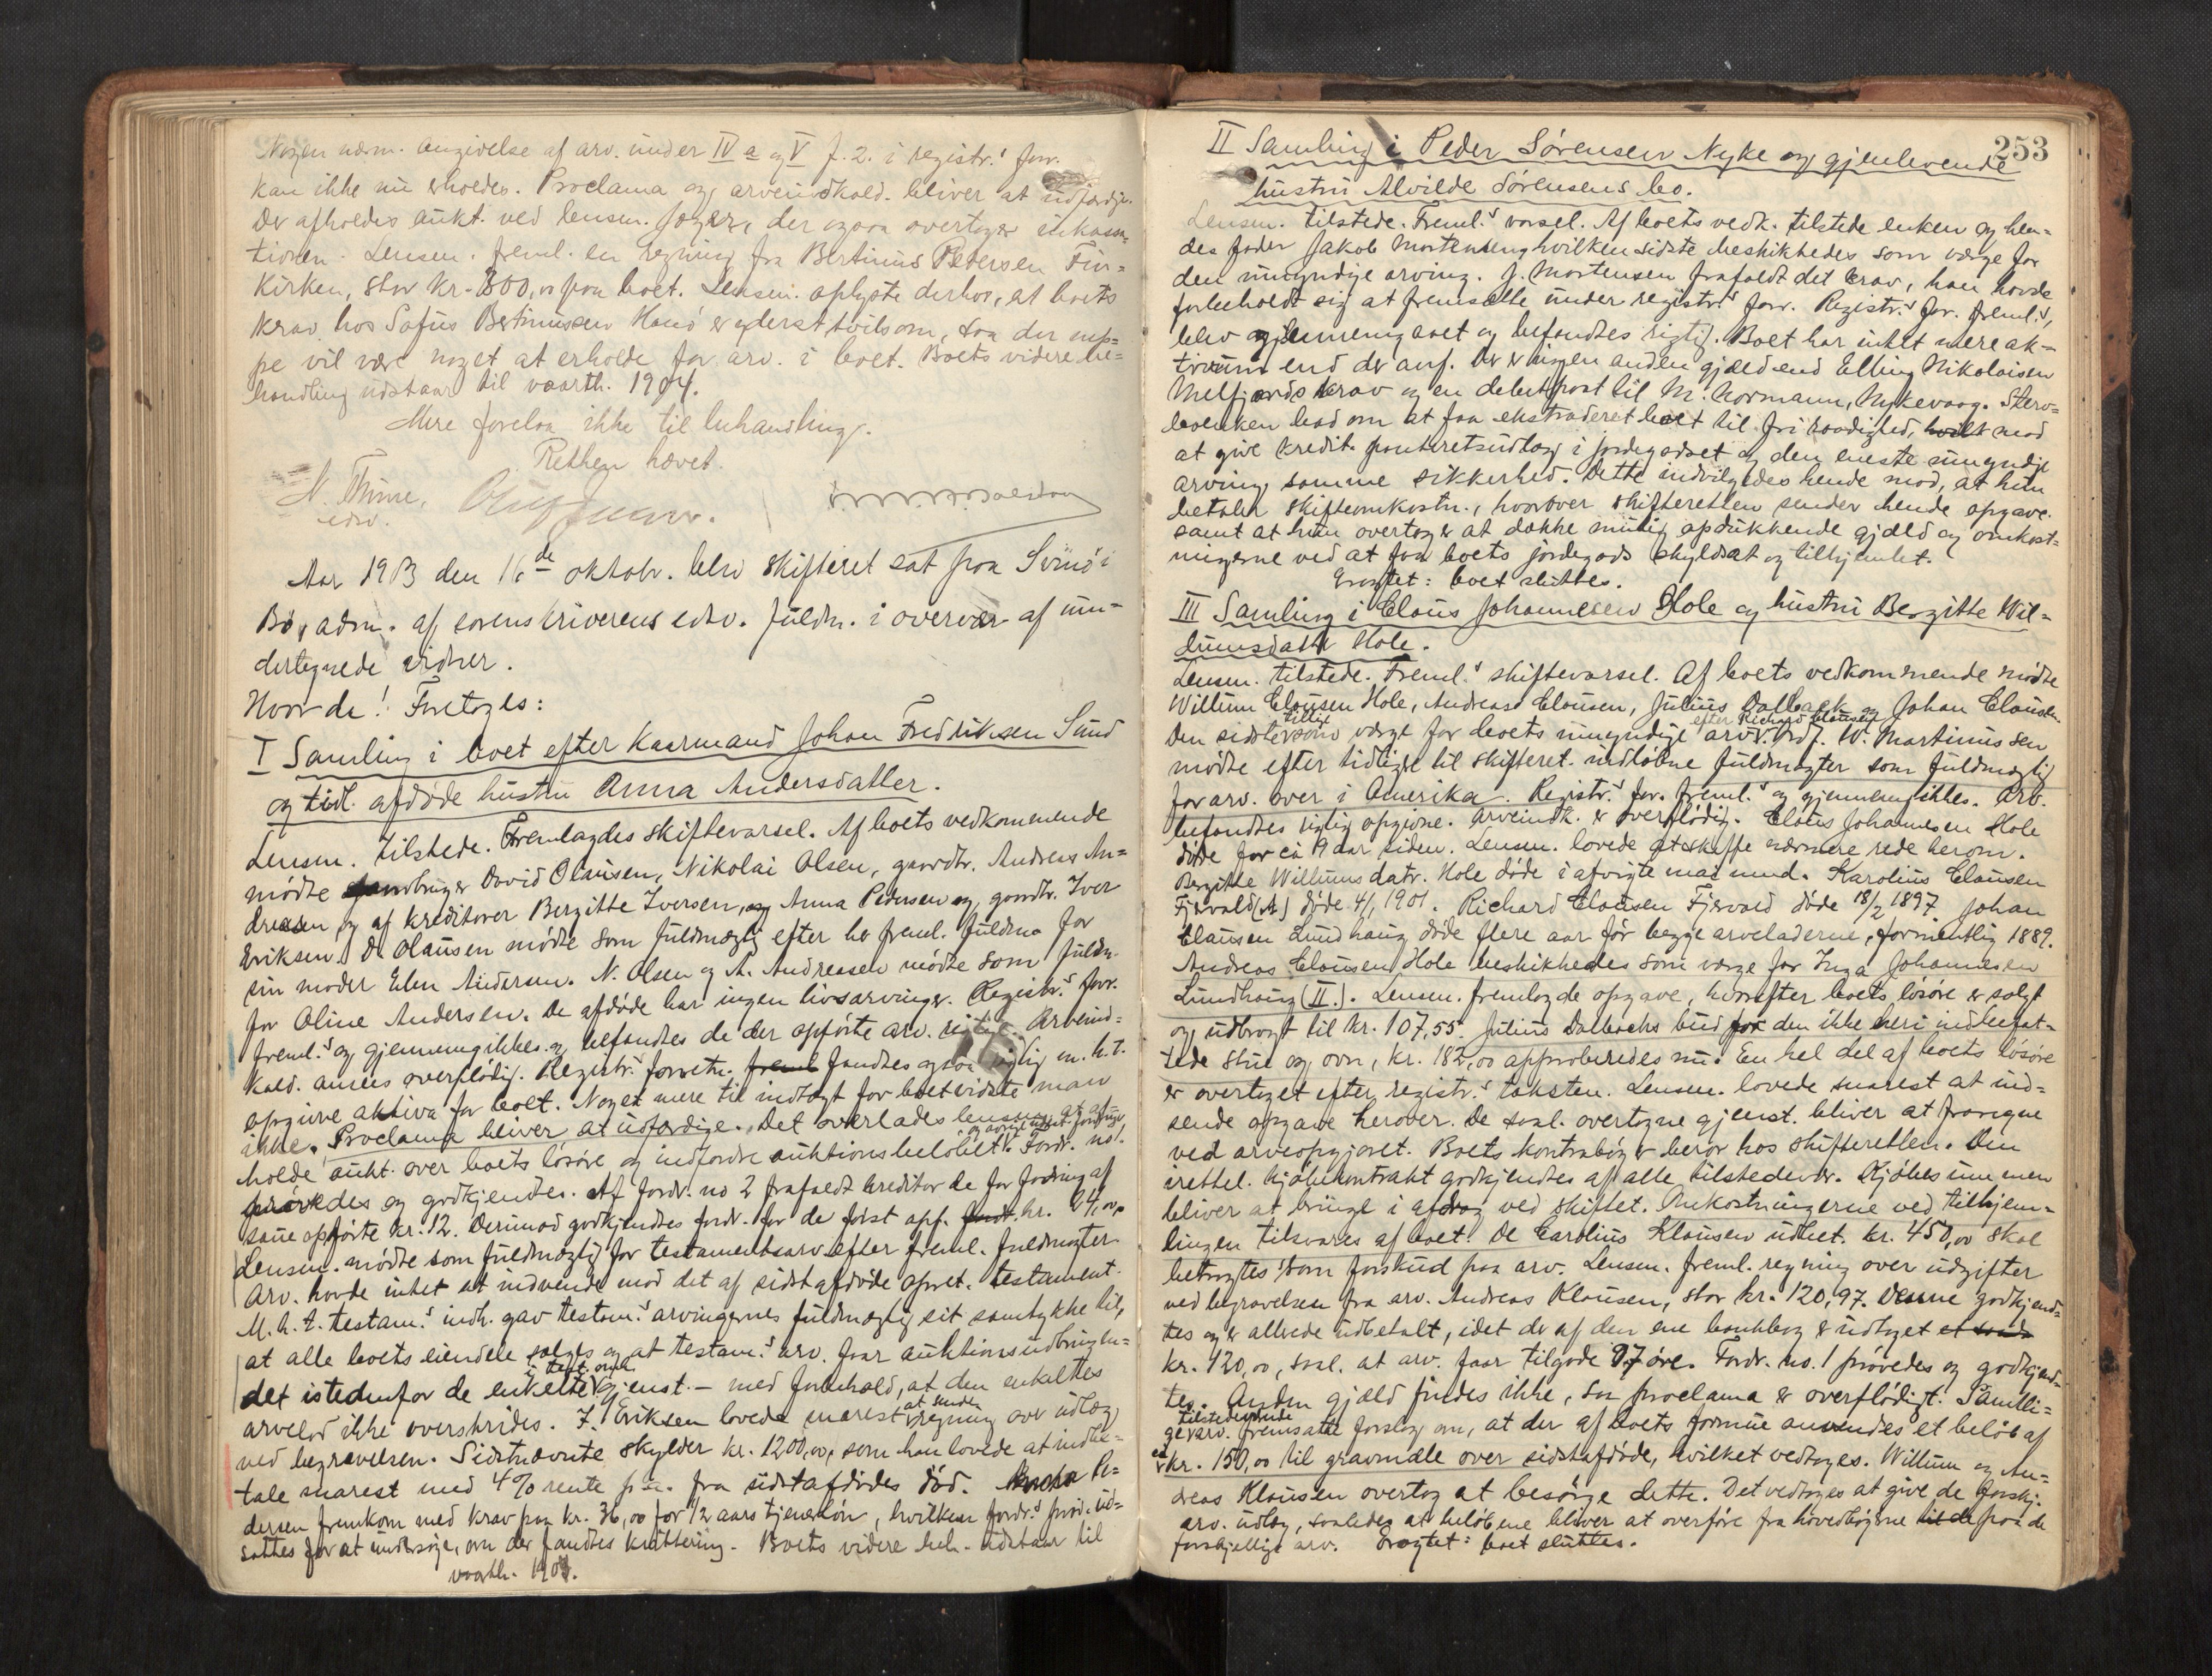 Nogen nærm. angivelse af arv. under IV a og V f. 2. i registr.s forr.
kan ikke nu erholdes. Proclama og arveindkald. bliver at udfærdige.
Der afholdes aukt. ved lensm. Jæger, der ogsaa overtager inkassa-
tionen. Lensm. freml. en regning fra Bertinus Pedersen Fin-
kirken, stor kr. 300,00 paa boet. Lensm. oplyste derhos, at boets
krav hos Sofus Bertinussen Hanö er yderst tvilsom, saa der nep-
pe vil være noget at erholde for arv. i boet. Boets videre be-
handling udstaar til vaarth. 1904.
Mere forelaa ikke til behandling.
Retten hævet.
N. Thime,
edsv.
Aar 1903 den 16de oktobr. blev skifteret sat paa Svinö i
Bö, adm. af sorenskriverens edsv. fuldm. i overvær af un-
dertegnede vidner.
Hvor da! Foretoges:
I Samling i boet efter kaarmand Johan Fredriksen Sund
og tidl. afdöde hustru Anna Andersdatter.
Lensm. tilstede. Fremlagdes skiftevarsel. Af boets vedkommende
mödte gaardbruger David Olausen, Nikolai Olsen, gaardbr. Andreas An-
dreasen, og af kreditorer Bergitte Iversen, og Anna Pedersen og gaardbr. Iver
Eriksen. D. Olausen mödte som fuldmægtig efter her freml. fuldm. for
sin moder Elen Andersen. N. Olsen og A. Andreasen mödte som fuldm.
for Oline Andersen. De afdöde har ingen livsarvinger. Registr.s forr.
freml.s og gjennemgikkes og befandtes de der opförte arv. rigtig. Arveind-
kald. ansees overflödig. Registr.s forretn. freml fandtes ogsaa rigtig m. h. t.
opgivne aktiva for boet. Noget mere til indtægt for boet vidste man
ikke. Proclama bliver at udfærdige. Det overlades lensm. at af-
holde aukt. over boets lösöre og indfordre auktionsbelöbet. Fordr. no. 1
prövedes og godkjendtes. Af fordr. no 2 frafaldt kreditor de for fodring af
saue opförte kr. 12. Derimod godkjendtes fordr. for de först opf. fordr. kr. 24,00.
Lensm. mödte som fuldmægtig for testamentsarv. efter freml. fuldmagter.
Arv. havde intet at indvende mod det af sidstafdöde opret. testament.
M. h. t. testam.s indh. gav testam.s arvingernes fuldmægtig sit samtykke til,
at alle boets eiendele sælges og at testam.s arv. faar auktionsudbringen-
det istedenfor de enkelte i test. omh. gjenst. – med forbehold, at den enkeltes
arvelod ikke overskrides. I. Eriksen lovede snarest at sende regning over udlæg
ved begravelsen. Sidstnævnte skylder kr. 1200,00, som han lovede at indbe-
tale snarest med 4% rente p.a. fra sidstafdödes död. Anna Pe-
dersen fremkom med krav paa kr. 36,00 for 1/2 aars tjenerlön, hvilken fordr.s pröv. ud-
sattes for at undersöge, om der fandtes kvittering. Boets videre beh. udstaar til
vaarth. 1904.
253
II Samling i Peder Sörensen Nyke og gjenlevende
hustru Alvilde Sörensens bo.
Lensm. tilstede. Freml.s varsel. Af boets vedk. tilstede enken og hen-
des fader Jakob Mortensen, hvilken sidste beskikkedes som værge for
den umyndige arving. J. Mortensen frafaldt det krav, han havde
forbeholdt sig at fremsætte under registr.s forr. Registr.s for. freml.s,
blev gjennemgaaet og befandtes rigtig. Boet har intet mere ak-
tivum end der anf. Der er ingen anden gjæld end Elling Nikolaisen
Melfjords krav og en debetpost til M. Normann, Nykevaag. Sterv-
boenken bad om at faa ekstraderet boet til fri raadighed, hvilk mod
at give kredit. panteretsudlæg i jordegodset og den eneste umyndige
arving samme sikkerhed. Dette indvilgedes hende mod, at hun
betaler skifteomkostn., hvorover skifteretten sender hende opgave
samt at hun overtager at dække mulig opdukkende gjæld og omkost-
ningerne ved at faa boets jordegods skyldsat og tilhjemlet.
Eragtet: boet sluttes.
III Samling i Claus Johannesen Hole og hustru Bergitte Wil-
lumsdatter Hole.
Lensm. tilstede. Freml.s skiftevarsel. Af boets vedkommende mödte
Willum Clausen Hole, Andreas Clausen, Julius Dalbach og Johan Clausen.
Den sidste tillige som værge for boets umyndige arv. efter Richard Clausen. W. Martinussen
mödte efter tidligere til skifteret. indlöbne fuldmagter som fuldmægtig
for arv. over i Amerika. Registr.s for. freml.s og gjennemgikkes. Arv.
befandtes rigtig opgivne. Arveindk. er overflödig. Claus Johannesen Hole
döde for ca 9 aar siden. Lensm. lovede at skaffe nærmere rede herom.
Bergitte Willumsdatr. Hole döde i afvigte mai mnd. Karolius Clausen
Fjærvold (A) döde 4/1 1901. Richard Clausen Fjærvold döde 18/2 1897. Johan
Clausen Lundhaug döde flere aar för begge arveladerne, formentlig 1889.
Andreas Clausen Hole beskikkedes som værge for Inga Johannesen
Lundhaug (II.). Lensm. fremlagde opgave, hvorefter boets lösöre er solgt
og udbragt til kr. 107,55. Julius Dalbachs bud for den ikke heri indbefat-
tede stue og ovn, kr. 182,00 approberedes nu. En hel del af boets lösöre
er overtaget efter registr.s taksten. Lensm. lovede snarest at ind-
sende opgave herover. De saal. overtagne gjenst. bliver at fraregne
ved arveopgjøret. Boets kontrabøger beror hos skifteretten. Den
irettel. kjöbekontrakt godkjendtes af alle tilstedevær. Kjöbesummen
bliver at bringe i afdrag ved skiftet. Omkostningerne ved tilhjem-
lingen tilsvares af boet. De Carolius Klausen udbet. kr. 450,00 skal
betragtes som forskud paa arv. Lensm. freml. regning over udgifter
ved begravelsen fra arv. Andreas Klausen, stor kr. 120,97. Denne godkjend-
tes og er allerede udbetalt, idet der af den ene bankbog er udtaget
kr. 120,00, saal. at arv. faar tilgode 97 öre. Fordr. no. 1 prövedes og godkjend-
tes. Anden gjæld findes ikke, saa proclama er overflödigt. Samtli-
ge tilstedeværende arv. fremsatte forslag om, at der af boets formue anvendes et belöb af
ca kr. 150,00 til gravmæle over sidstafdöde, hvilket vedtoges. Willum og An-
dreas Klausen overtog at besörge dette. Det vedtoges at give de forskj.
arv. udlæg, saaledes at belöbene bliver at overföre fra hovedbögerne til de paa de
forskjellige arv. Eragtet: boet sluttes.